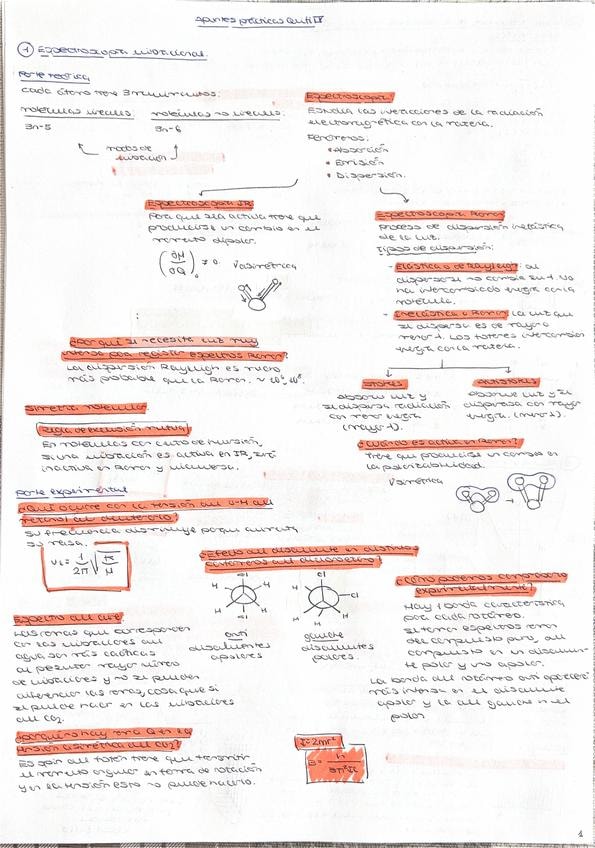 Apuntes prácticas Quifi IV
1 Espectroscopía vibracional.
Parte teórica
Cada átomo tiene 3 movimientos:
moléculas lineales: moléculas no lineales:
3n-5 3n-6
modos de
vibración
Espectroscopía
Estudia las interacciones de la radiación
electromagnética con la materia.
Fenómenos:
• Absorción
• Emisión
• Dispersión.
Espectroscopía IR
Para que sea activa tiene que
producirse un cambio en el
momento dipolar.
(∂M/∂Q)₀ ≠ 0. Vasimétrica
Espectroscopía Raman
proceso de dispersión inelástica
de la luz.
Tipos de dispersión:
- Elástica o de Rayleigh: al
dispersarse no cambia su λ. No
ha intercambiado energía con la
molécula.
- Inelástica o Raman: la luz que
se dispersa es de mayor o
menor λ. Los fotones intercambian
energía con la materia.
¿Por qué se necesita luz muy
intensa para registrar espectros Raman?
La dispersión Rayleigh es mucho
más probable que la Raman.
STOKES
absorbe luz y
se dispersa radiación
con menor energía
(mayor λ).
ANTISTOKES
absorbe luz y se
dispersa con mayor
energía. (menor λ).
Simetría molecular
Regla de exclusión mutua
En moléculas con centro de inversión,
si una vibración es activa en IR, será
inactiva en Raman y viceversa.
¿Cuándo es activa en Raman?
Tiene que producirse un cambio en
la polarizabilidad.
Vsimétrica
Parte experimental
¿Qué ocurre con la tensión del O-H del
metanol al deuterarlo?
Su frecuencia disminuye porque aumenta
su masa.
¿Efecto del disolvente en distintos
confórmeros del dicloroetano?
Cl H H H H Cl
H Cl Cl H H H
anti gauche
disolventes disolventes
apolares polares.
¿Cómo podemos comprobarlo
experimentalmente?
Hay 1 banda característica
para cada rotámero.
Se toman espectros tanto
del compuesto puro, del
compuesto en un disolvente
polar y uno apolar.
La banda del rotámero anti aparecerá
más intensa en el disolvente
apolar y la del gauche en el
polar
Espectro del aire
Las zonas que corresponden
con las vibraciones del
agua son más caóticas
al presentar mayor número
de vibraciones y no se pueden
diferenciar las ramas, cosa que sí
se puede hacer en las vibraciones
del CO₂.
¿Porqué no hay rama Q en la
tensión asimétrica del CO₂?
El spin del fotón tiene que transmitir
el momento angular en forma de rotación
y en la tensión esto no puede hacerlo.
I=2mr²
B = h/8π²Ic
1